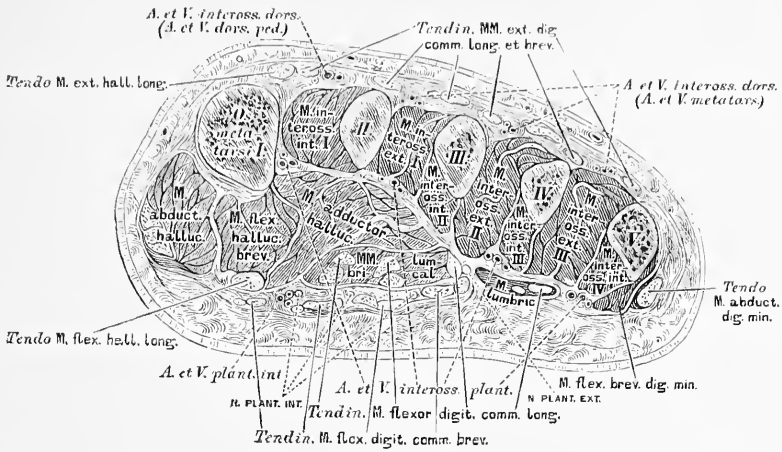 A. et V. inteross. dors.
(A. et V. dors. ped.)
Tendin. MM. ext. dig.
comm. long. et brev.
Tendo M. ext. hall. long.
A et V. inteross. dors.
(A. et V. metatars.)
O.
meta
tarsi I.
M. in-
teross.
int. I
II
M. in-
teross.
ext. I
III
M.
inter-
oss.
int.
II
M.
inter-
oss.
ext.
II
IV
M.
inter
oss.
int.
III
M.
inter
oss.
ext.
III
V
M.
inter
oss. int.
IV
M.
abduct.
halluc.
M. flex.
halluc.
brev.
M. adductor
halluc.
MM.
bri
lum-
cal
M.
lumbric
Tendo
M. abduct.
dig. min.
Tendo M. flex. hell. long.
A. et V. plant. int
N. PLANT. INT.
A. et V. inteross. plant.
N PLANT. EXT.
M. flex. brev. dig. min.
Tendin. M. flexor digit. comm. long.
Tendin. M. flex. digit. comm. brev.